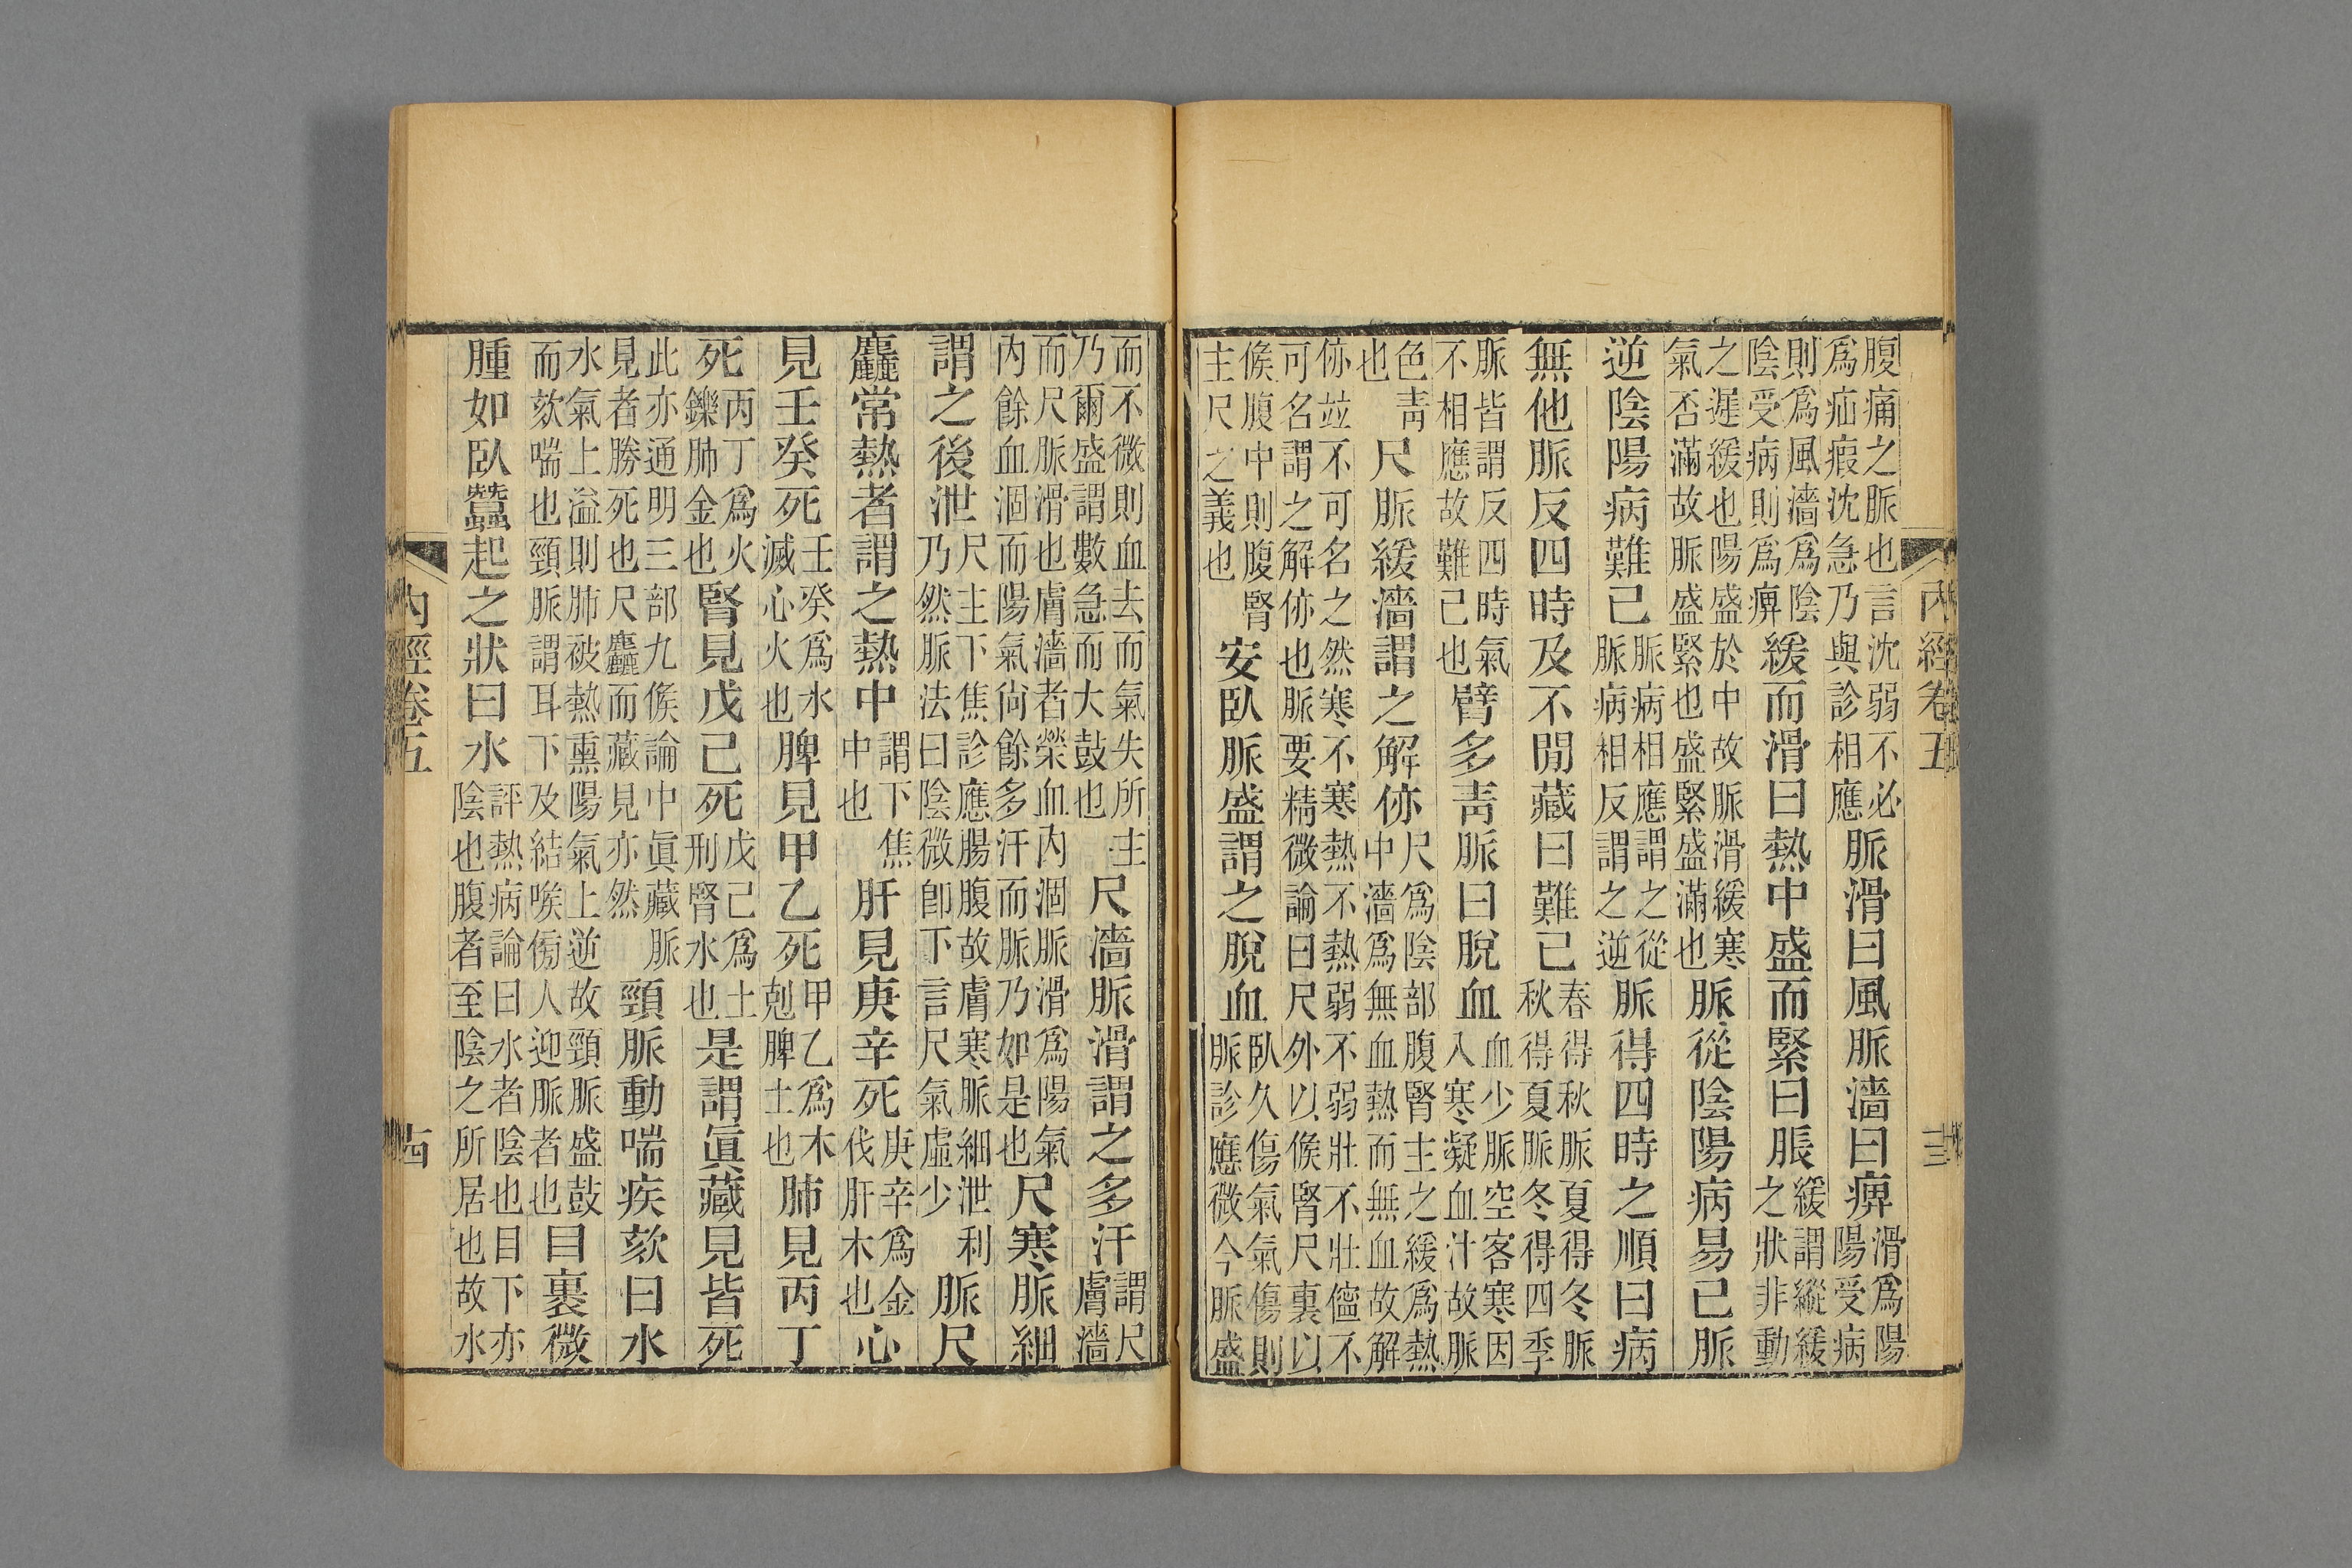 內經卷五
腹痛之脈也言沈弱不必爲疝瘕沈急乃與診相應脈滑曰風脈濇曰痹滑爲陽陽受病
則爲風濇爲陰陰受病則爲痹緩而滑曰熱中盛而緊曰脹緩謂縱緩之狀非動
之遲緩也陽盛於中故脈滑緩寒氣否滿故脈盛緊也盛緊盛滿也脈從陰陽病易已脈
逆陰陽病難已脈病相應謂之從脈病相反謂之逆脈得四時之順曰病
無他脈反四時及不閒藏曰難已春得秋脈夏得冬脈秋得夏脈冬得四季
脈皆謂反四時氣不相應故難已也臂多靑脈曰脫血血少脈空客寒因入寒凝血汁故脈
色靑也尺脈緩濇謂之解㑊尺爲陰部腹腎主之緩爲熱中濇爲無血熱而無血故解
㑊竝不可名之然寒不寒熱不熱弱不弱壯不壯儜不可名謂之解㑊也脈要精微論曰尺外以候腎尺裏以
候腹中則腹腎主尺之義也安臥脈盛謂之脫血臥久傷氣氣傷則脈診應微今脈盛
而不微則血去而氣失所主乃爾盛謂數急而大鼓也尺濇脈滑謂之多汗謂尺膚濇
而尺脈滑也膚濇者榮血內涸脈滑爲陽氣內餘血涸而陽氣尙餘多汗而脈乃如是也尺寒脈細
謂之後泄尺主下焦診應腸腹故膚寒脈細泄利乃然脈法曰陰微卽下言尺氣虛少脈尺
麤常熱者謂之熱中謂下焦中也肝見庚辛死庚辛爲金伐肝木也心
見壬癸死壬癸爲水滅心火也脾見甲乙死甲乙爲木剋脾土也肺見丙丁
死丙丁爲火鑠肺金也腎見戊己死戊己爲土刑腎水也是謂眞藏見皆死
此亦通明三部九候論中眞藏脈見者勝死也尺麤而藏見亦然頸脈動喘疾欬曰水
水氣上溢則肺被熱熏陽氣上逆故頸脈盛鼓而欬喘也頸脈謂耳下及結喉傍人迎脈者也目裏微
腫如臥蠶起之狀曰水評熱病論曰水者陰也目下亦陰也腹者至陰之所居也故水
內經卷五